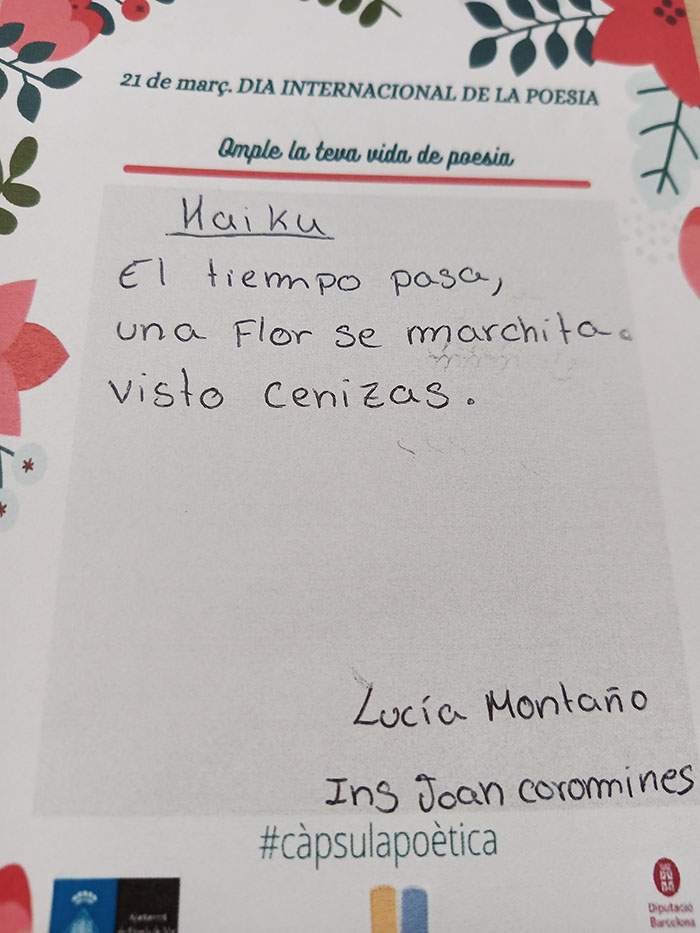 21 de març. DIA INTERNACIONAL DE LA POESIA
Omple la teva vida de poesia
Haiku
El tiempo pasa,
una Flor se marchita.
visto cenizas.
Lucía Montaño
Ins Joan coromines
#càpsulapoètica
Diputació
Barcelona